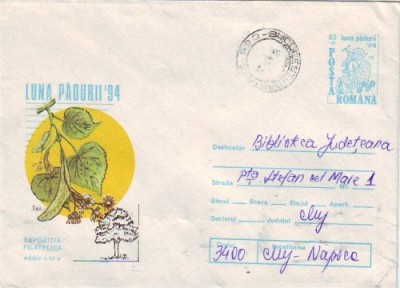 60
L
luna pădurii
'94
POSTA
ROMÂNA
LUNA PĂDURII '94
Tei
EXPOZIȚIA
FILATELICĂ
EDIȚIA a VI-a
Destinatar Biblioteca Județeana
Strada pța. Ștefan cel Mare 1
Blocul Scara Etajul Apart.
Sectorul Județul Cluj
3400 Localitatea Cluj - Napoca